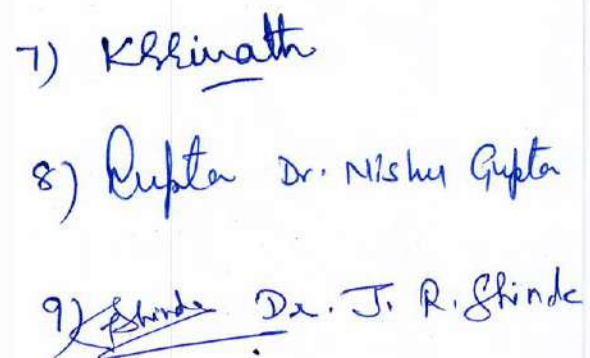 7) KSrinath
8) Gupta Dr. Nishu Gupta
9) Shinde Dr. J. R. Shinde